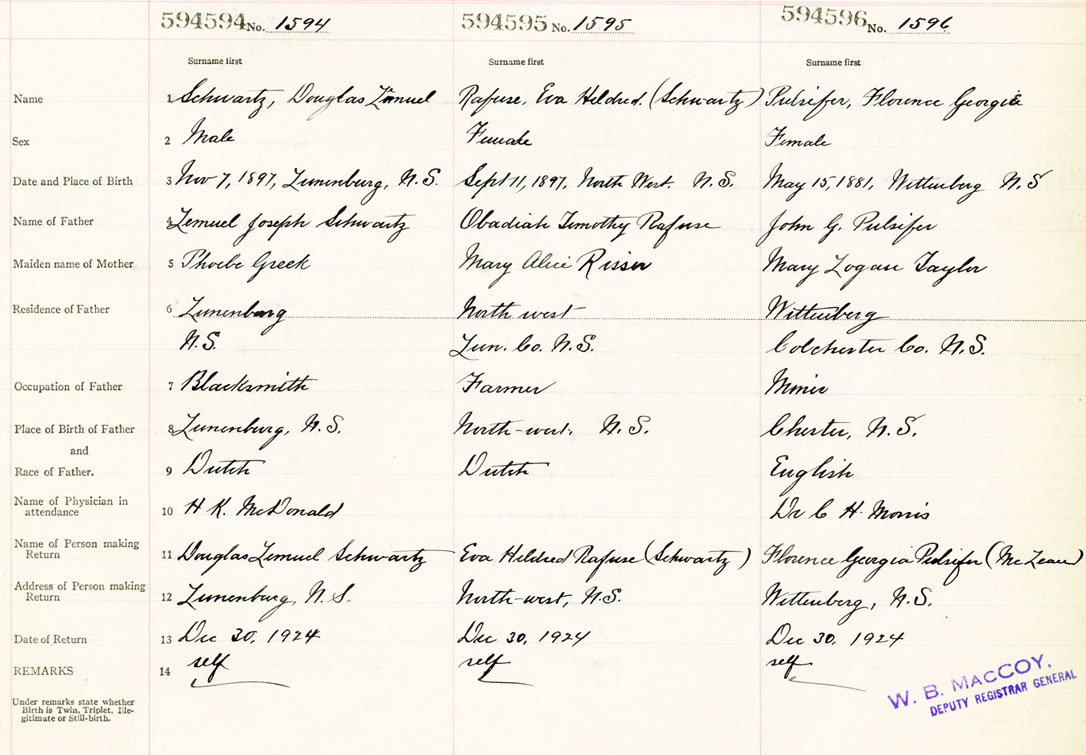 594594 No. 1594 594595 No. 1595 594596 No. 1596
Surname first Surname first Surname first
Name 1 Schwartz, Douglas Lemuel Rafuse, Eva Hildred. (Schwartz) Pulsifer, Florence Georgia
Sex 2 Male Female Female
Date and Place of Birth 3 Nov 7, 1897, Lunenburg, N.S. Sept 11, 1897, North West. N.S. May 15, 1881, Wittenberg N.S
Name of Father 4 Lemuel Joseph Schwartz Obadiah Timothy Rafuse John G. Pulsifer
Maiden name of Mother 5 Phoebe Greek Mary Alice Risser Mary Logan Taylor
Residence of Father 6 Lunenburg North west Wittenberg
N.S. Lun. Co. N.S. Colchester Co. N.S.
Occupation of Father 7 Blacksmith Farmer Miner
Place of Birth of Father 8 Lunenburg, N.S. North-west. N.S. Chester, N.S.
and
Race of Father. 9 Dutch Dutch English
Name of Physician in
attendance 10 H K. McDonald Dr C H. Morris
Name of Person making
Return 11 Douglas Lemuel Schwartz Eva Hildred Rafuse (Schwartz) Florence Georgia Pulsifer (McLean)
Address of Person making
Return 12 Lunenburg, N.S. North-west, N.S. Wittenberg, N.S.
Date of Return 13 Dec 30, 1924 Dec 30, 1924 Dec 30, 1924
REMARKS 14 self self self
Under remarks state whether
Birth is Twin, Triplet, Ille-
gitimate or Still-birth.
W. B. MACCOY,
DEPUTY REGISTRAR GENERAL